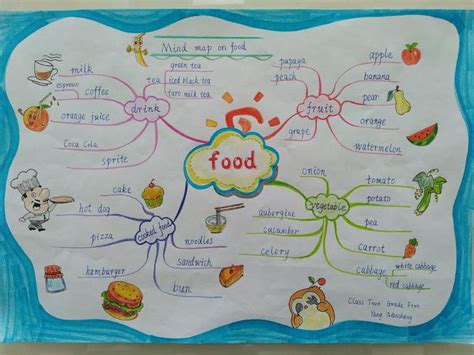 Mind map on food
food
drink
milk
espresso
coffee
orange juice
Coca Cola
sprite
tea
green tea
iced black tea
taro milk tea
fruit
papaya
peach
grape
apple
banana
pear
orange
watermelon
cooked food
cake
hot dog
pizza
hamburger
noodles
sandwich
bun
vegetable
onion
aubergine
cucumber
celery
tomato
potato
pea
carrot
cabbage
white cabbage
red cabbage
Class Two Grade Five
Yang